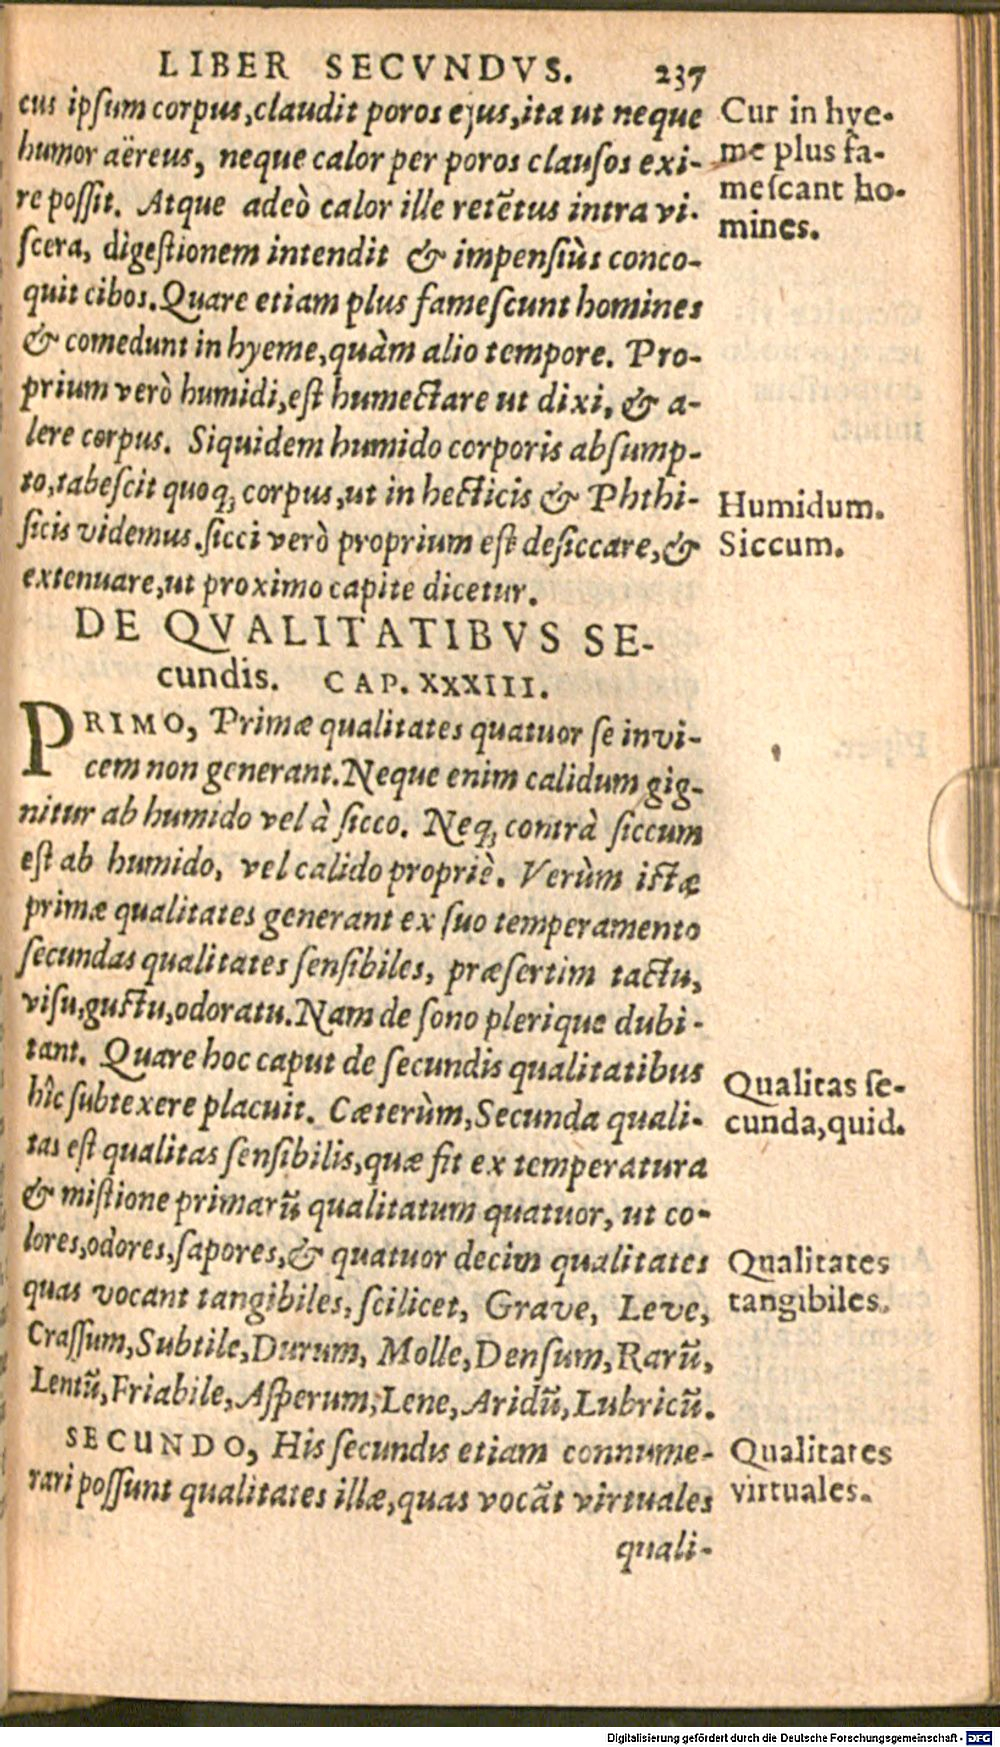 LIBER SECVNDVS. 237
cus ipſum corpus,claudit poros ejus,ita ut neque
humor aëreus, neque calor per poros clauſos exi-
re poſſit. Atque adeò calor ille retētus intra vi-
ſcera, digeſtionem intendit & impenſiùs conco-
quit cibos.Quare etiam plus fameſcunt homines
& comedunt in hyeme,quàm alio tempore. Pro-
prium verò humidi,eſt humectare ut dixi, & a-
lere corpus. Siquidem humido corporis abſump-
to,tabeſcit quoq; corpus,ut in hecticis & Phthi-
ſicis videmus.ſicci verò proprium eſt deſiccare,&
extenuare,ut proximo capite dicetur.
Cur in hye-
me plus fa-
meſcant ho-
mines.
Humidum.
Siccum.
DE QVALITATIBVS SE-
cundis. CAP. XXXIII.
PRIMO, Primæ qualitates quatuor ſe invi-
cem non generant.Neque enim calidum gig-
nitur ab humido vel à ſicco. Neq; contrà ſiccum
eſt ab humido, vel calido propriè. Verùm iſtæ
primæ qualitates generant ex ſuo temperamento
ſecundas qualitates ſenſibiles, præſertim tactu,
viſu,guſtu,odoratu.Nam de ſono plerique dubi-
tant. Quare hoc caput de ſecundis qualitatibus
hîc ſubtexere placuit. Cæterùm,Secunda quali-
tas eſt qualitas ſenſibilis,quæ fit ex temperatura
& miſtione primarū qualitatum quatuor, ut co-
lores,odores,ſapores,& quatuor decim qualitates
quas vocant tangibiles, ſcilicet, Grave, Leve,
Craſſum,Subtile,Durum, Molle,Denſum,Rarū,
Lentū,Friabile,Aſperum,Lene,Aridū,Lubricū.
SECUNDO, His ſecundis etiam connume-
rari poſſunt qualitates illæ,quas vocāt virtuales
quali-
Qualitas ſe-
cunda,quid.
Qualitates
tangibiles.
Qualitates
virtuales.
Digitalisierung gefördert durch die Deutsche Forschungsgemeinschaft - DFG